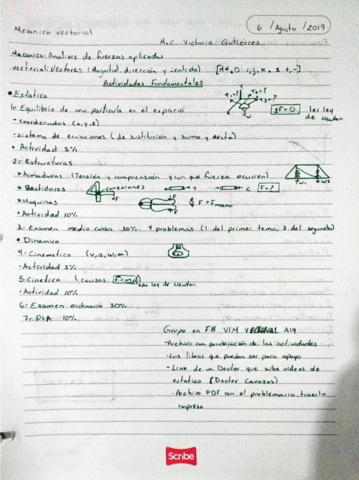 6 / Agosto / 2019
Mecanica vectorial M.C. Victoria Gutiérrez
Mecanica: Analisis de fuerzas aplicadas
vectorial: Vectores (Magnitud, dirección y sentido) i, j, k. ± +, -]
Actividades Fundamentales
• Estatica
1: Equilibrio de una particula en el espacio ΣF=0 1er ley de Newton
- coordenadas (x, y, z)
- sistema de ecuaciones (de sustitución y suma y resta)
• Actividad 5%
2: Estructuras
• Armaduras (Tensión y compresión y con que fuerza ocurren)
• Bastidores conexiones T C F=?
• Maquinas F = Fmano
• Actividad 10%
3: Examen medio curso 30% 4 problemas (1 del primer tema, 3 del segundo)
• Dinamica
4: Cinematica (v, a, w, m)
- Actividad 5%
5: Cinetica (causas) F=ma 2da ley de Newton
- Actividad 10%
6: Examen ordinario 30%
7: PIA 10%
Grupo en FB VIM VECTORIAL A19
- Archivo con ponderación de las actividades
- Los libros que puedan ser para apoyo
- Link de un Doctor que sube videos de estatica (Doctor Cavazos)
- Archivo PDF con el problemario, traerlo impreso
Scribe